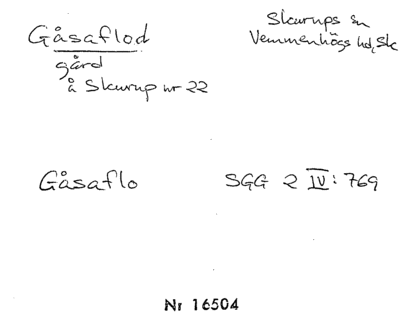 Gåsaflod
gård
å Skurup nr 22
Skurups sn
Vemmenhögs hd, Sk
Gåsaflo
SGG 2 IV: 769
Nr 16504